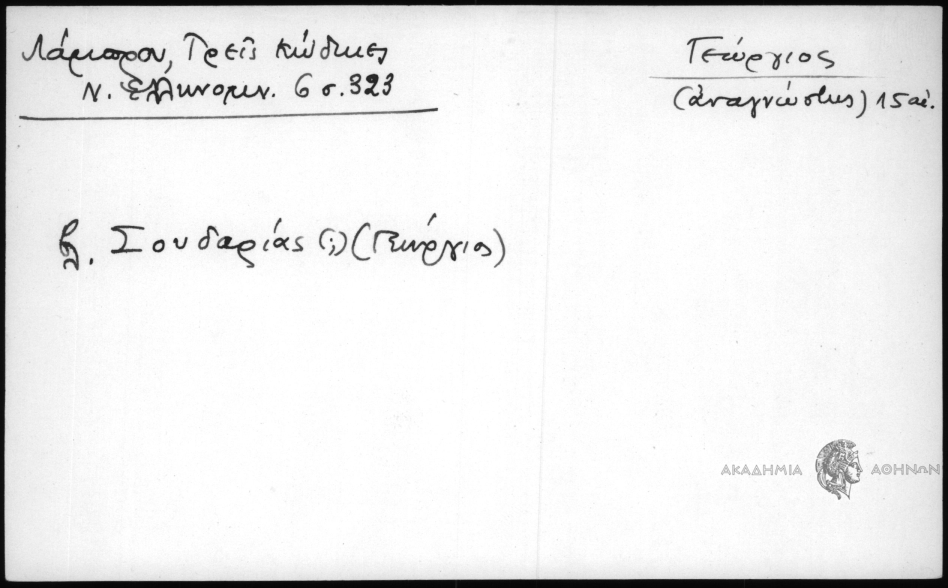 Λάμπρου, Τρεῖς κώδικες
Ν. Ἑλληνομν. 6 σ. 323
Γεώργιος
(ἀναγνώστης) 15 αἰ.
βλ. Σουδαρίας (;) (Γεώργιος)
ΑΚΑΔΗΜΙΑ ΑΘΗΝΩΝ